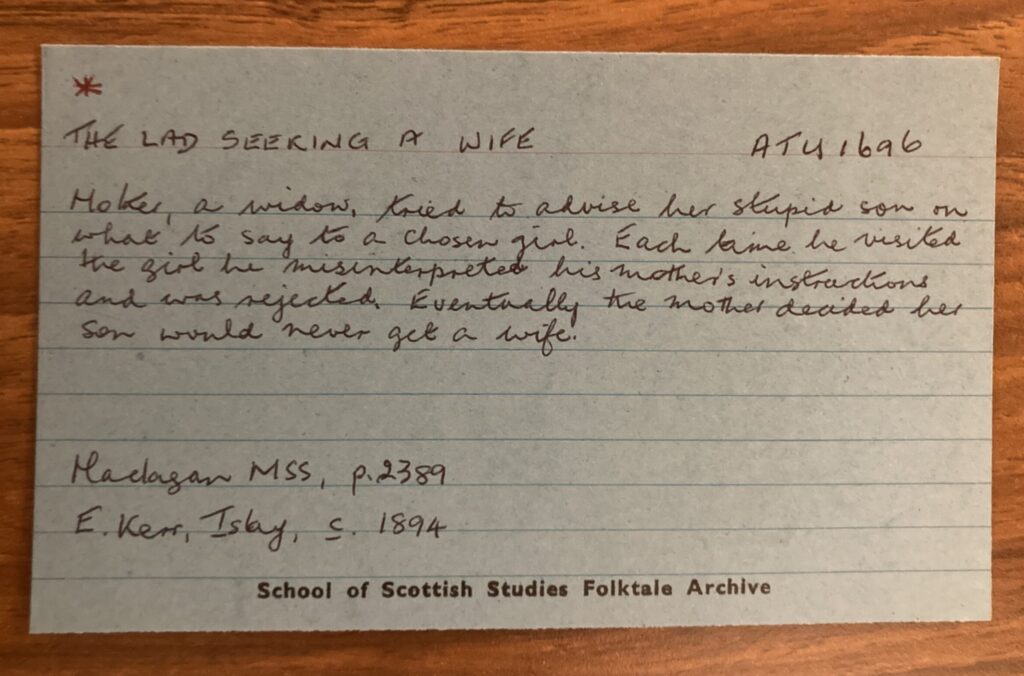 *
THE LAD SEEKING A WIFE ATU 1696
Mother, a widow, tried to advise her stupid son on
what to say to a chosen girl. Each time he visited
the girl he misinterpreted his mother's instructions
and was rejected. Eventually the mother decided her
son would never get a wife.
Maclagan MSS, p.2389
E. Kerr, Islay, c. 1894
School of Scottish Studies Folktale Archive